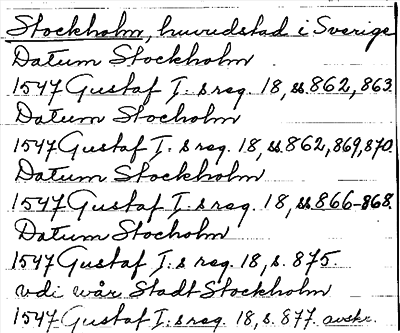 Stockholm, huvudstad i Sverige
Datum Stockholm
1547 Gustaf I:s reg. 18, ss. 862, 863.
Datum Stockholm
1547 Gustaf I:s reg. 18, ss. 862, 869, 870.
Datum Stockholm
1547 Gustaf I:s reg. 18, ss. 866-868.
Datum Stocholm
1547 Gustaf I:s reg. 18, s. 875.
vdi wår Stadt Stockholm
1547 Gustaf I:s reg. 18, s. 877. avskr.